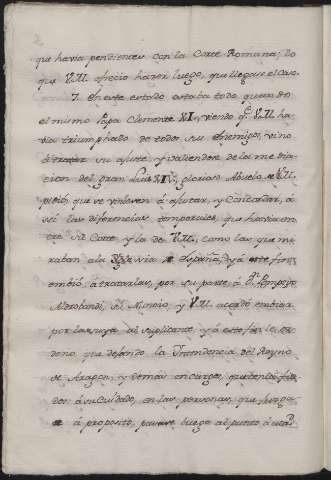 que havia pendientes con la Corte Romana; lo
que V.M. ofreció hazer luego, que llegase el caso.
7. En este estado estaba todo quando
el mismo Papa Clemente XI, viendo qe. V.M. ha-
via triumphado de todos sus Enemigos, vino
à tratar su ajuste, y valiendose de la media-
cion del gran Luis XIV, glorioso Abuelo de V.M.
pidió, que se viniesen à ajustar, y Concordar, a-
ssi las diferencias temporales, que havia en-
tre su Corte y la de V.M., como las, que mi-
raban a la Iglesia de España, y à este fin
embió, à tratarlas, por su parte à Dn. Pompeyo
Aldrobandi, Monseñor, y V.M. acordó embiar
por la suya al suplicante, y à este fin le or-
denó, que dejando la Intendencia del Reyno
de Aragon, y demás encargos, que tenia fia-
dos à su Cuidado, en las personas, que juzga-
se à proposito, pasase luego al punto à esta